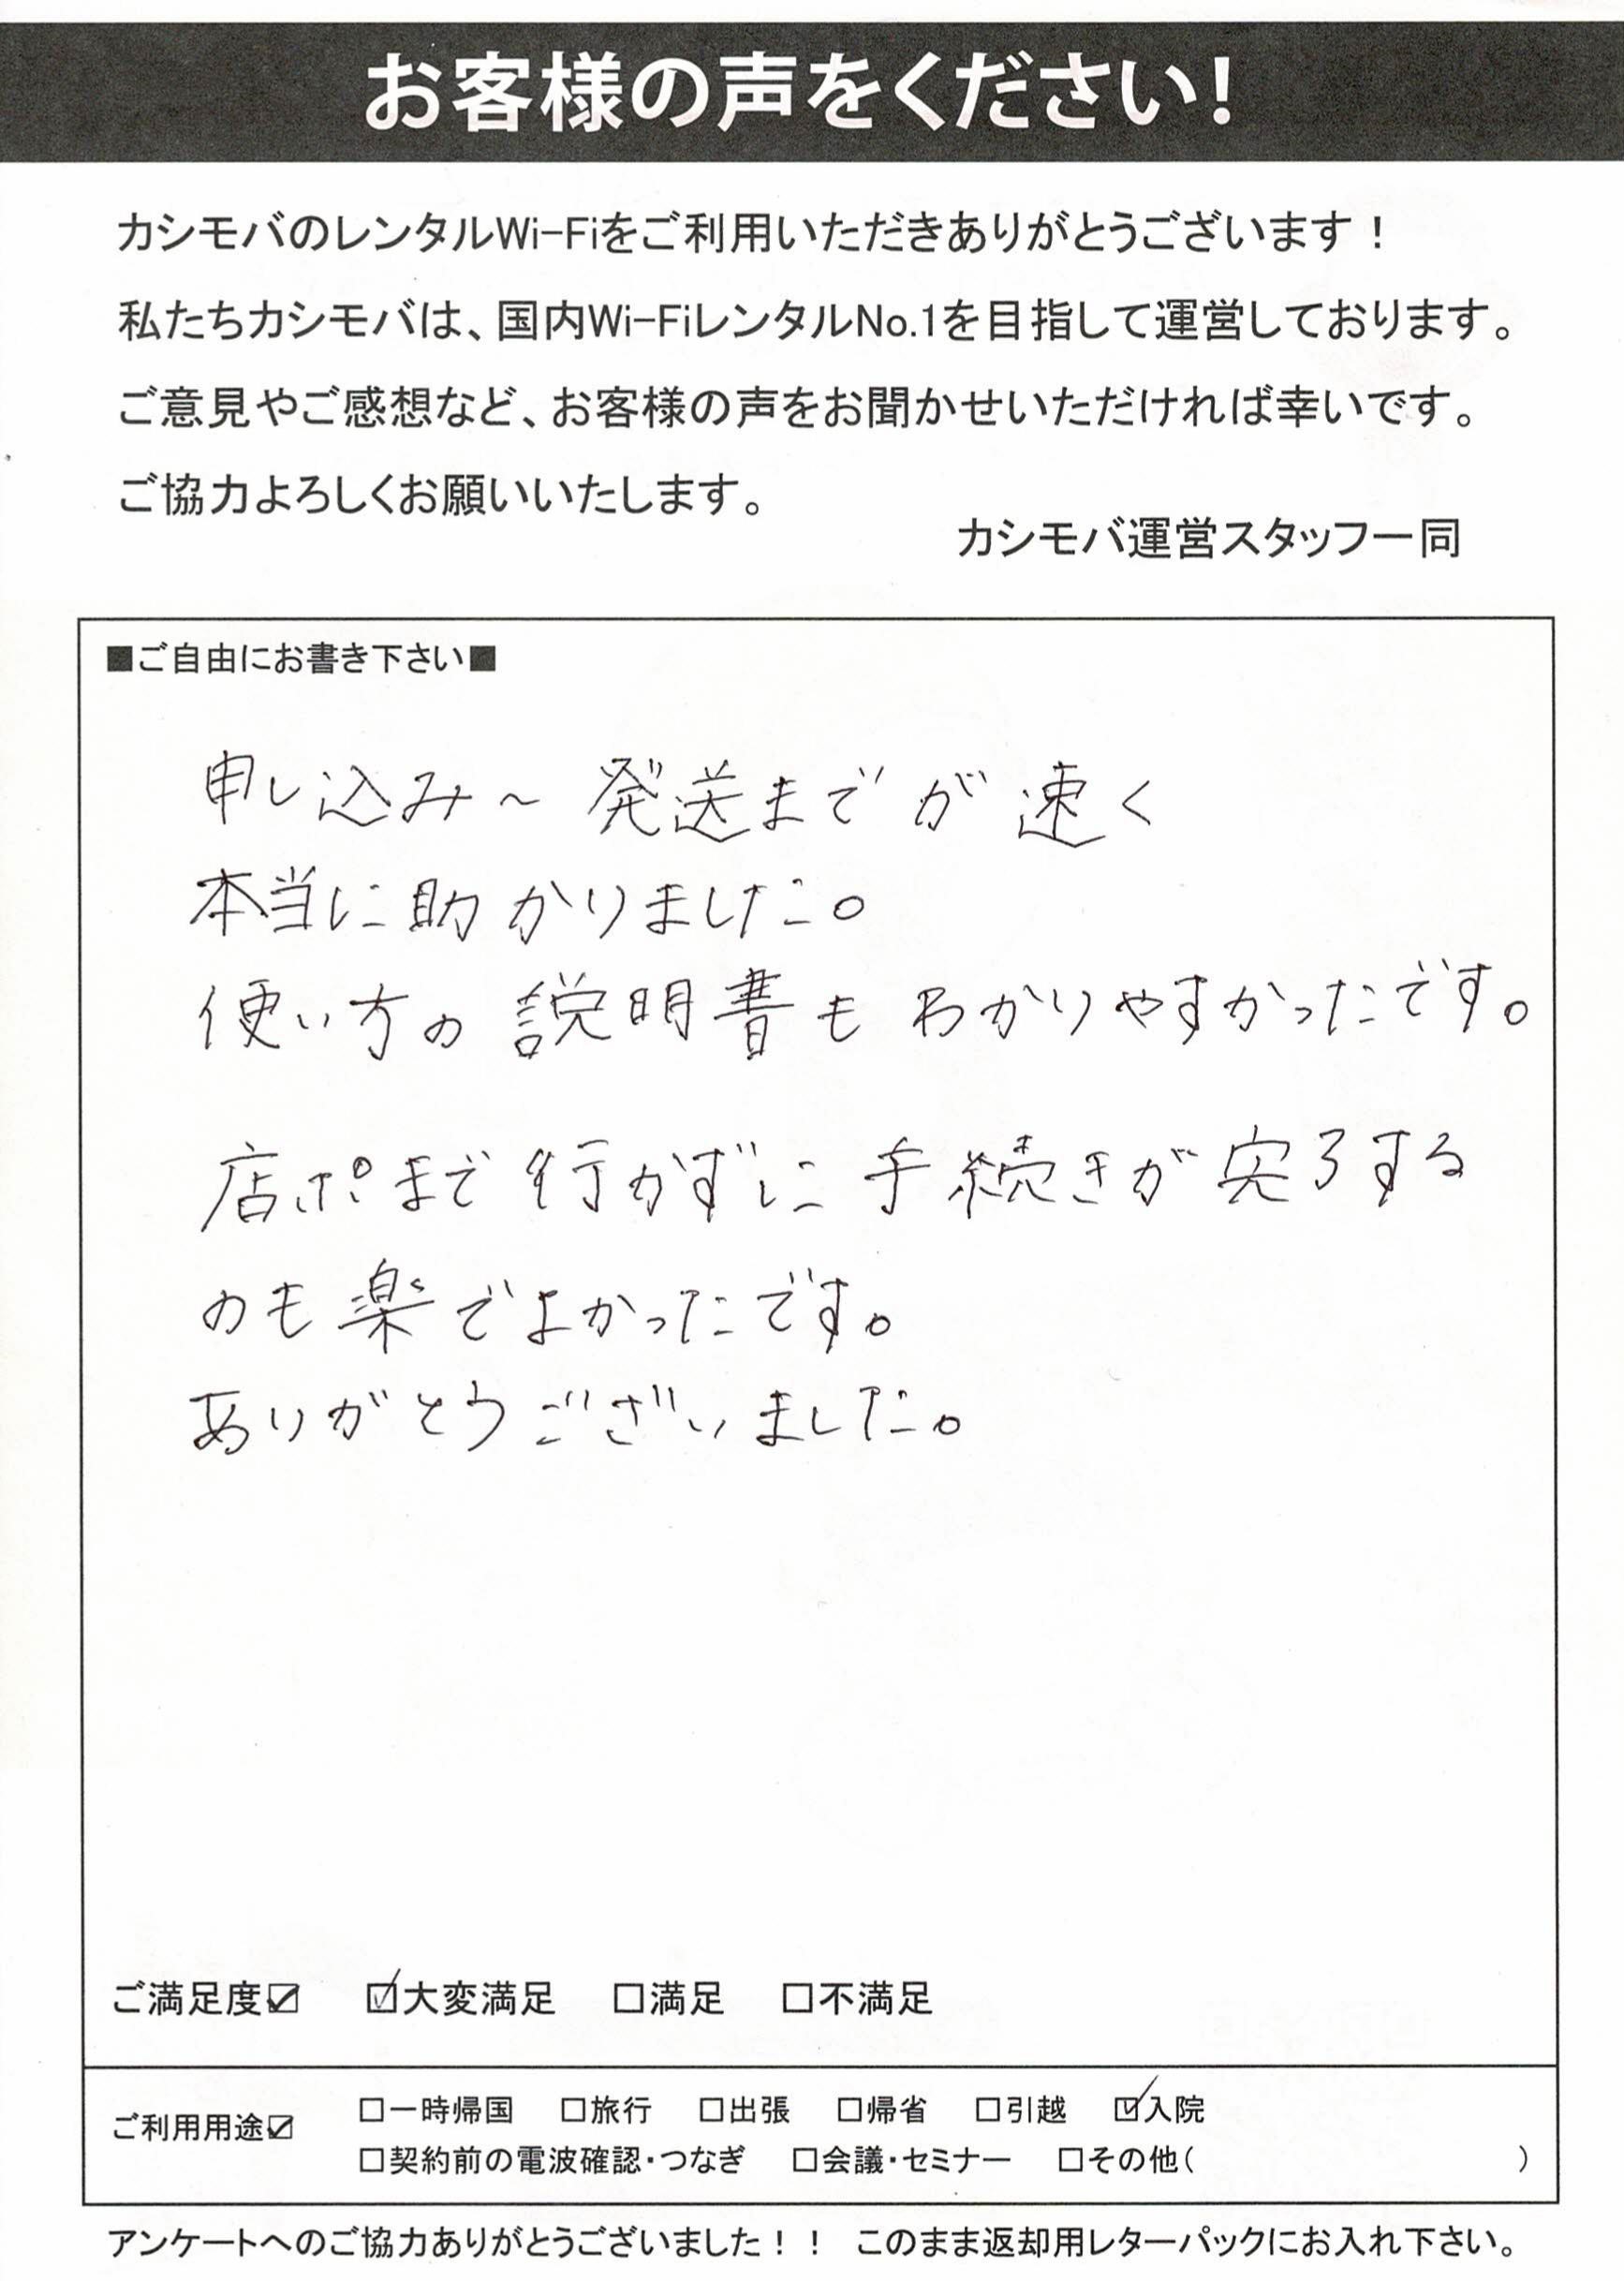 お客様の声をください！
カシモバのレンタルWi-Fiをご利用いただきありがとうございます！
私たちカシモバは、国内Wi-FiレンタルNo.1を目指して運営しております。
ご意見やご感想など、お客様の声をお聞かせいただければ幸いです。
ご協力よろしくお願いいたします。
カシモバ運営スタッフ一同
■ご自由にお書き下さい■
申し込み～発送までが速く
本当に助かりました。
使い方の説明書もわかりやすかったです。
店ポまで行かずに手続きが完了する
のも楽でよかったです。
ありがとうございました。
ご満足度☑ ☑大変満足 □満足 □不満足
ご利用用途☑ □一時帰国 □旅行 □出張 □帰省 □引越 ☑入院
□契約前の電波確認・つなぎ □会議・セミナー □その他（ ）
アンケートへのご協力ありがとうございました！！ このまま返却用レターパックにお入れ下さい。